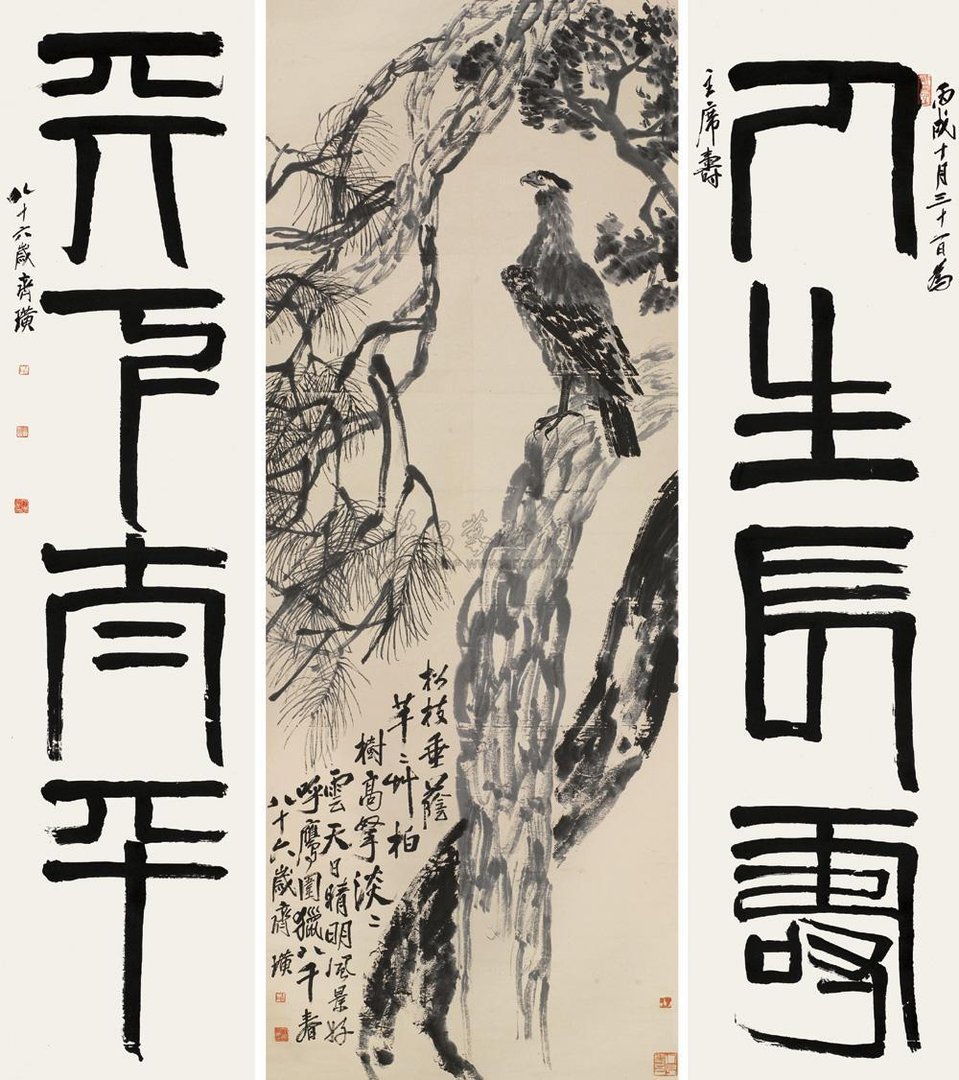 丙戌十月三十一日為
人生長壽
主席壽
松枝垂蔭
芊〻艸柏
樹高擎淡〻
雲天日晴明風景好
呼鷹圍獵八千春
八十六歲齊璜
天下太平
八十六歲齊璜